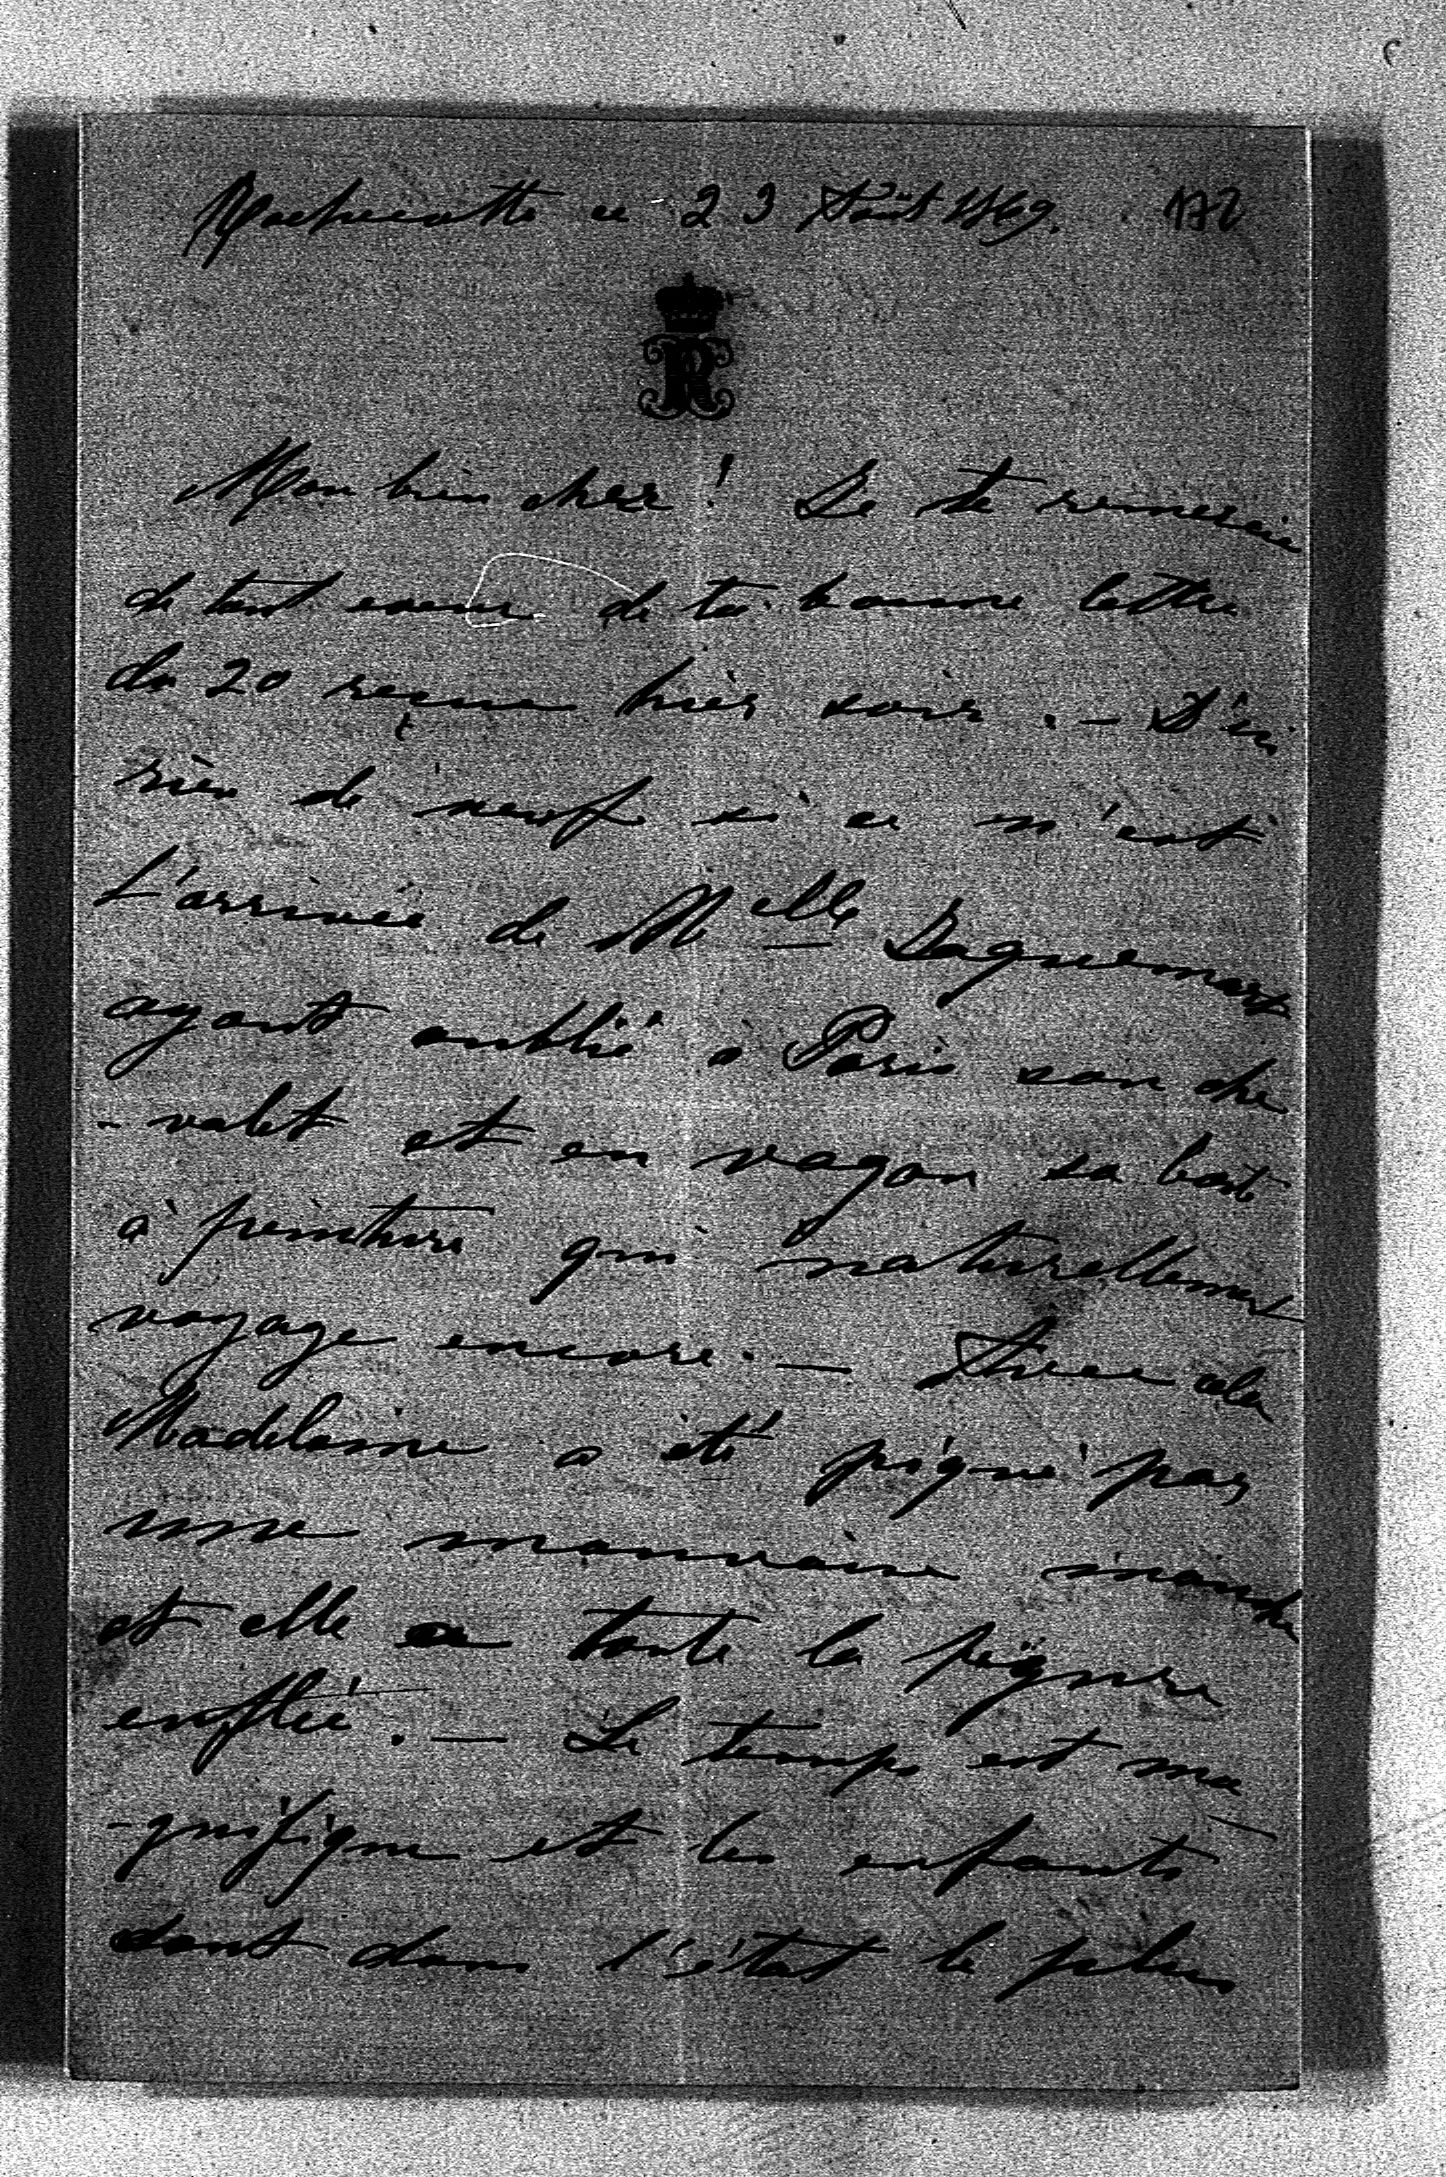 Rochecotte ce 23 Août 1869. 172
R
Mon bien cher! Je te remercie
de tout coeur de ta bonne lettre
du 20 reçue hièr soir. — D'ici
rièn de neuf si ce n'est
L'arrivée de Melle Jaquemart
ayant oublié a Paris son che
- valet et en vagon sa boite
à peinture qui naturellement
voyage encore. — Avec cela
Madelaine a été piqué par
une mauvaise mouche
et elle a toute la figure
enflée. — Le temps est ma
- gnifique et les enfants
sont dans l'état le plus